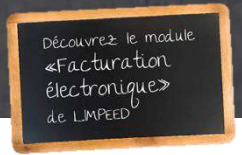 Découvrez le module
«Facturation
électronique»
de LIMPEED